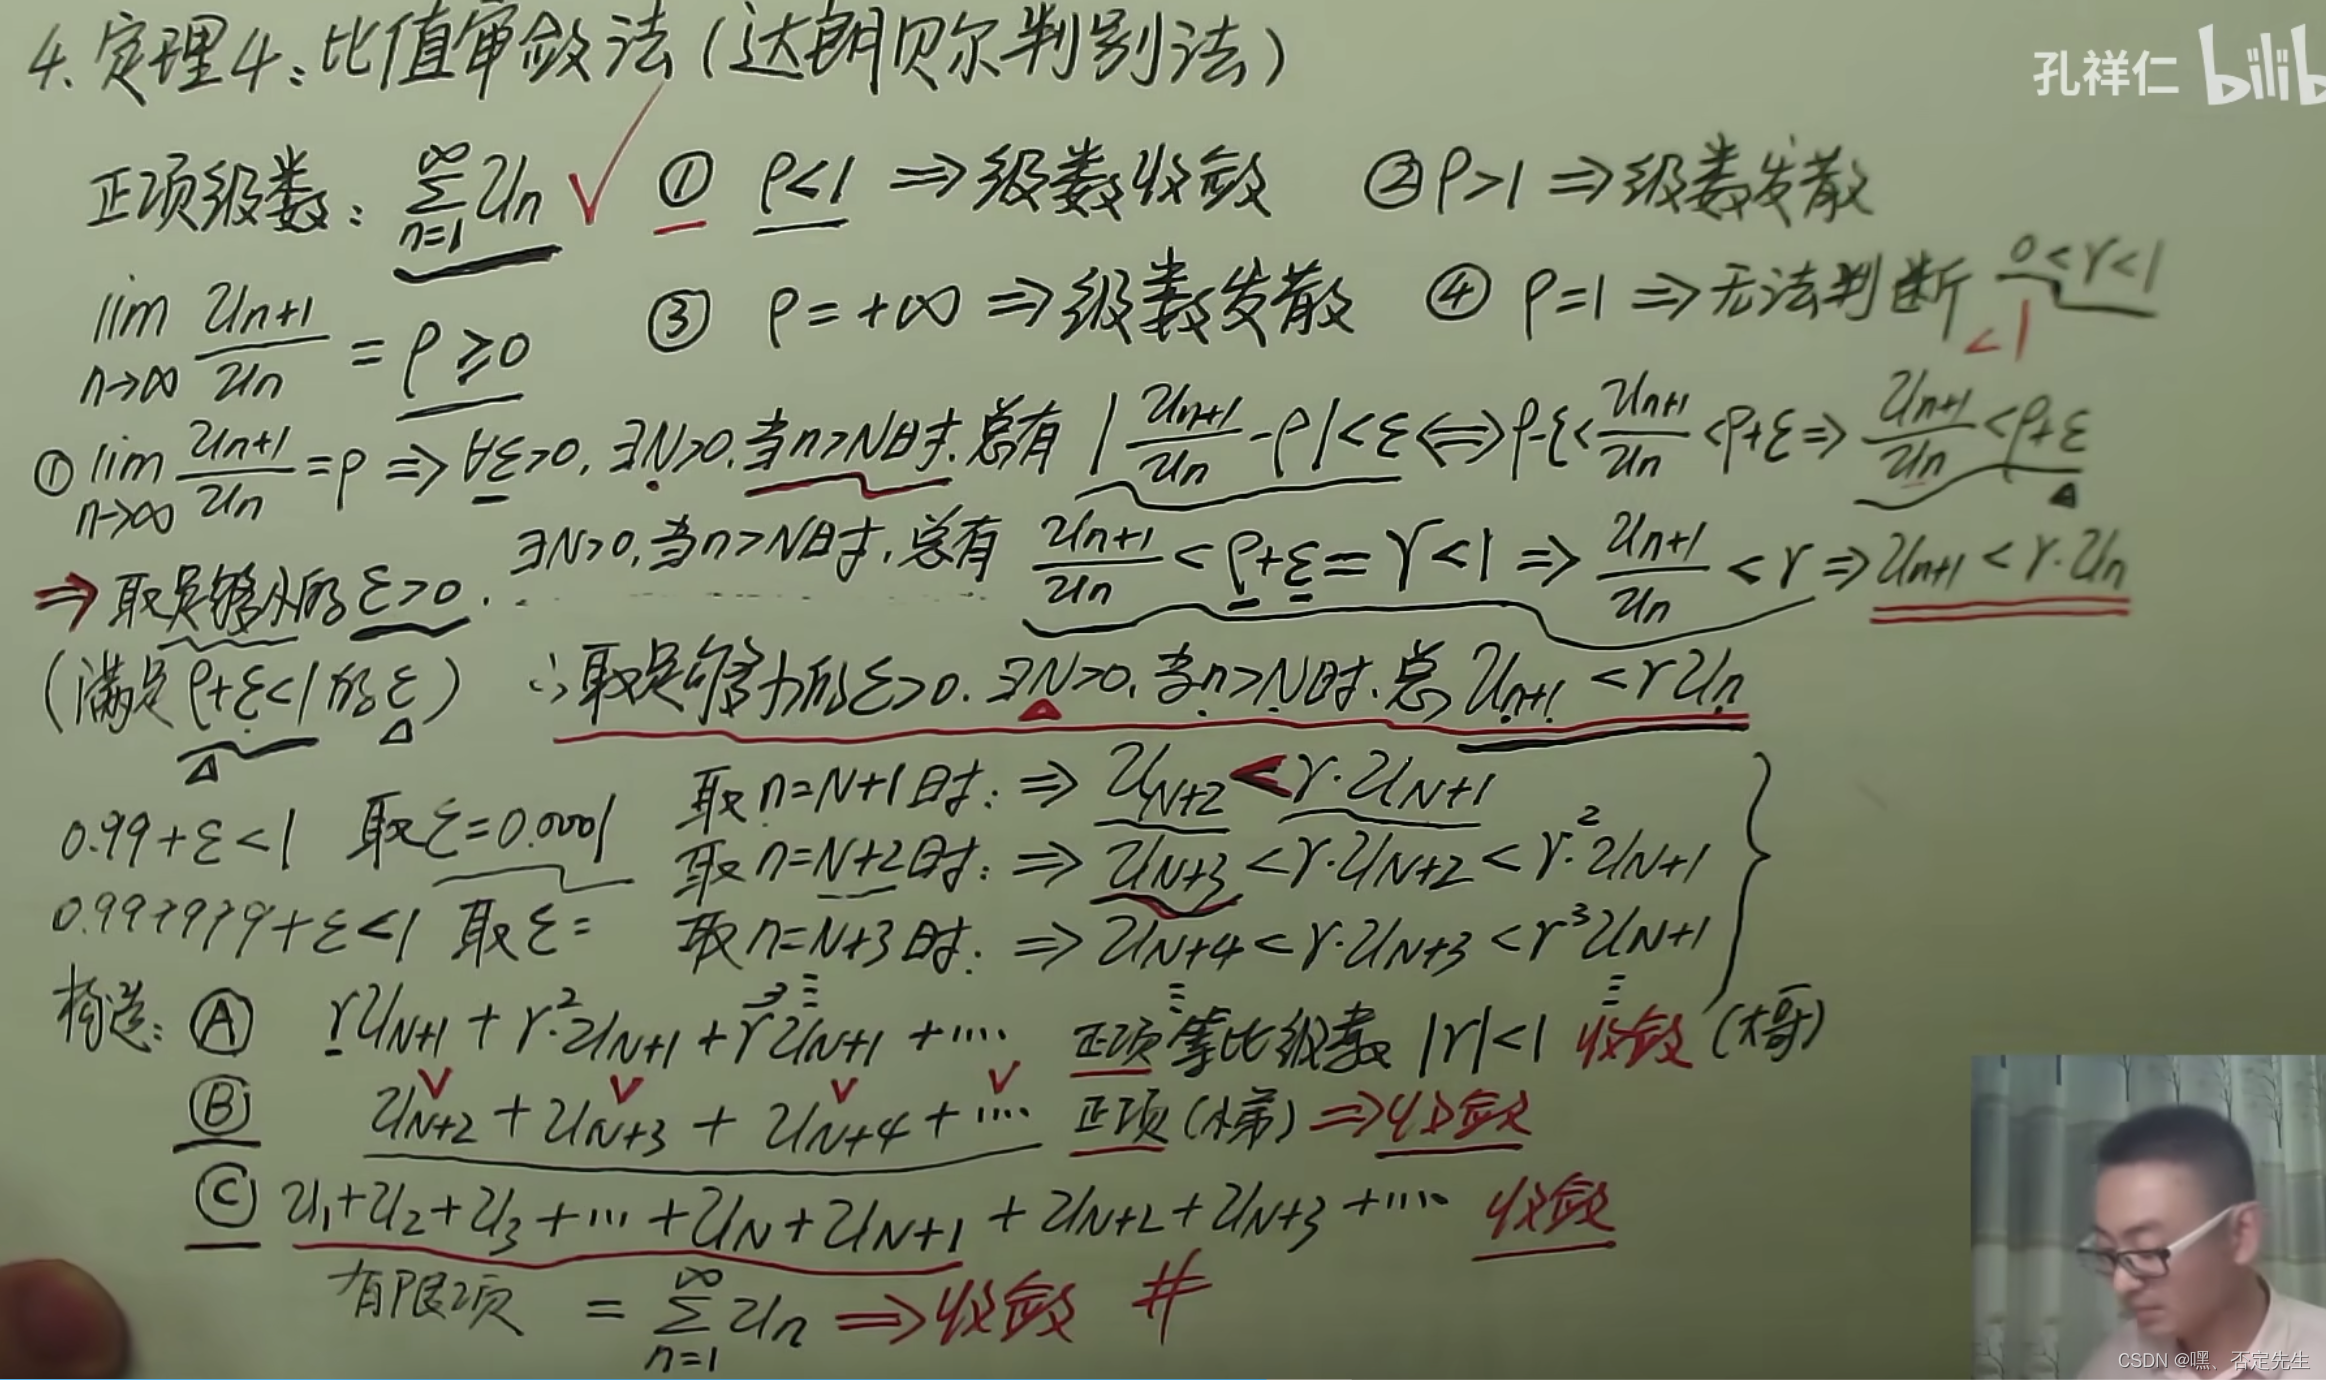 4. 定理4：比值审敛法（达朗贝尔判别法）
孔祥仁 bilib
正项级数：∑_{n=1}^{∞} Un ✓ ① ρ<1 ⇒ 级数收敛 ② ρ>1 ⇒ 级数发散
lim_{n→∞} U_{n+1}/U_n = ρ ≥ 0 ③ ρ=+∞ ⇒ 级数发散 ④ ρ=1 ⇒ 无法判断 0<r<1
<1
① lim_{n→∞} U_{n+1}/U_n = ρ ⇒ ∀ε>0, ∃N>0, 当n>N时, 总有 |U_{n+1}/U_n - ρ|<ε ⇔ ρ-ε<U_{n+1}/U_n<ρ+ε ⇒ U_{n+1}/U_n<ρ+ε
⇒ 取足够小的ε>0, ∃N>0, 当n>N时, 总有 U_{n+1}/U_n < ρ+ε = r < 1 ⇒ U_{n+1}/U_n < r ⇒ U_{n+1} < r·U_n
（满足ρ+ε<1的ε） ∴取足够小的ε>0, ∃N>0, 当n>N时, 总 U_{n+1} < rU_n
取n=N+1时: ⇒ U_{N+2} < r·U_{N+1}
0.99+ε<1 取ε=0.0001 取n=N+2时: ⇒ U_{N+3} < r·U_{N+2} < r²·U_{N+1}
0.999999+ε<1 取ε= 取n=N+3时: ⇒ U_{N+4} < r·U_{N+3} < r³U_{N+1}
构造: Ⓐ rU_{N+1} + r²·U_{N+1} + r³U_{N+1} + ···· 正项等比级数 |r|<1 收敛 (大哥)
Ⓑ U_{N+2} + U_{N+3} + U_{N+4} + ···· 正项(小弟) ⇒ 收敛
Ⓒ U_1+U_2+U_3+···+U_N+U_{N+1}+U_{N+2}+U_{N+3}+···· 收敛
有限项 = ∑_{n=1}^{∞} U_n ⇒ 收敛 #
CSDN @嘿、否定先生